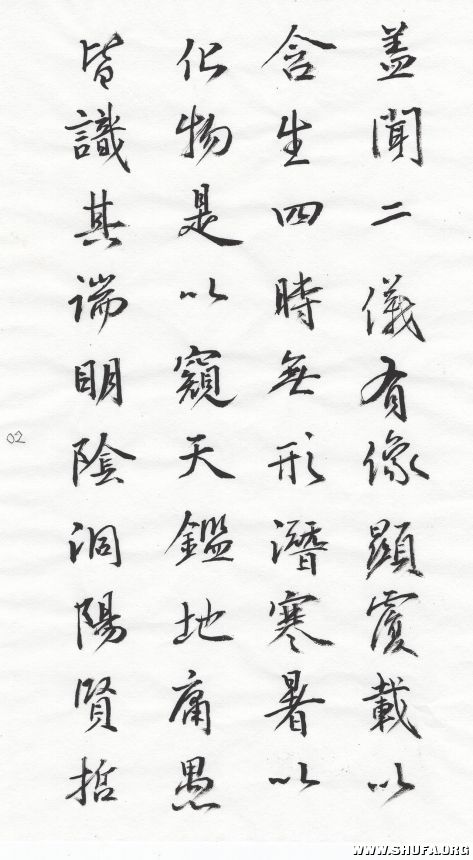 盖聞二儀有像顯覆載以
含生四時無形潛寒暑以
化物是以窺天鑑地庸愚
皆識其端明陰洞陽賢哲
02
WWW.SHUFA.ORG